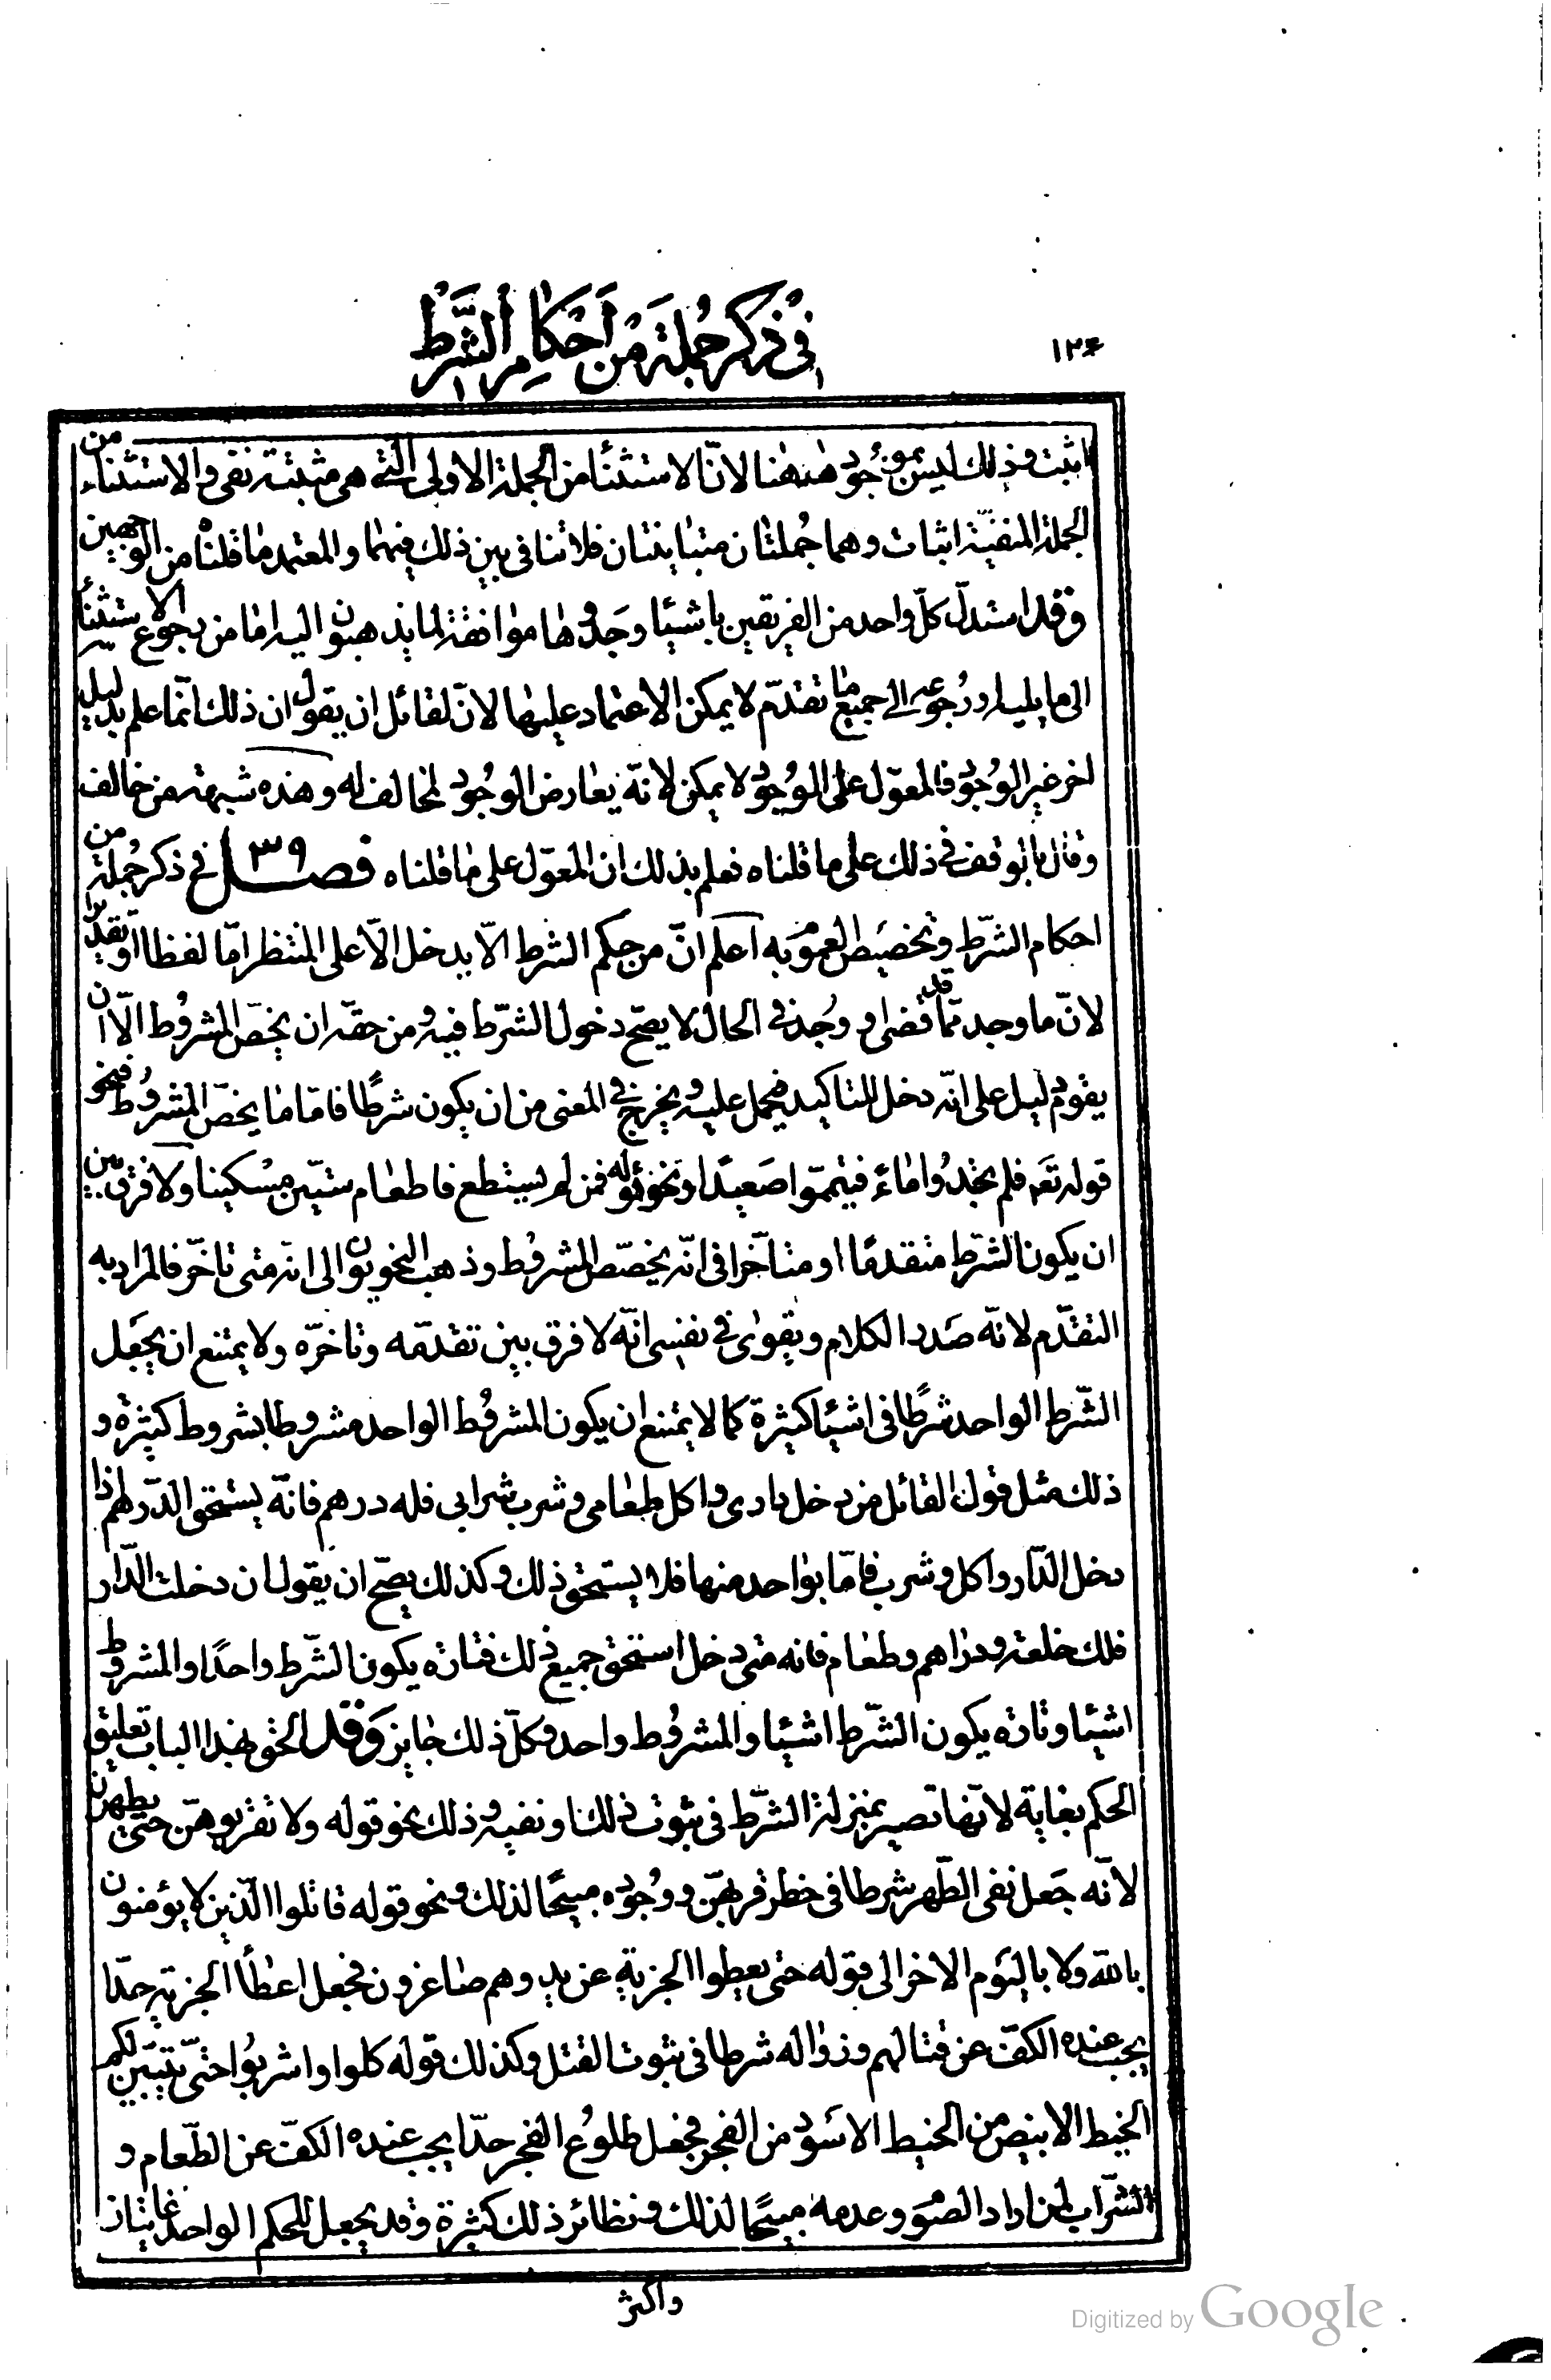 ١٢۶
فى ذكر جملة من احكام الشرط
اثبت وذلك ليس بموجود هٰهنا لانّ الاستثنا من الجملة الاولى التى هى مثبتة نفى والاستثناء من
الجملة المنفيّة اثبات وهما جملتان متباينتان فلا تنافى بين ذلك فيهما والمعتمد ما قلناه من الوجهين
وقد استدلّ كلّ واحد من الفريقين باشيا وجدوها موافقة لما يذهبون اليه اما من رجوع الاستثنا
الى ما يليه او رجوعه الى جميع ما تقدّم لا يمكن الاعتماد عليها لانّ لقائل ان يقول ان ذلك انّما علم بدليل
اخر غير الوجود فالمعوّل على الوجود لا يمكن لانّه يعارض الوجود لمخالف له وهذه شبهة من خالف
وقال بالوقف فى ذلك على ما قلناه فعلم بذلك ان المعوّل على ما قلناه فصل ٣٩ فى ذكر جملة من
احكام الشّرط وتخصيص العموم به اعلم انّ من حكم الشرط الّا يدخل الّا على المنتظر امّا لفظا او تقديرا
لانّ ما وجد ممّا قد قضى او وجد فى الحال لا يصحّ دخول الشّرط فيه ومن حقّه ان يخصّ المشروط الّا ان
يقوم دليل على انّه دخل للتاكيد فيحمل عليه ويخرج فى المعنى من ان يكون شرطًا فامّا ما يخصّ المشروط فنحو
قوله تعم فلم تجدوا ماءً فتيمّموا صعيدًا ونحو قوله فمن لم يستطع فاطعام ستّين مسكينا ولا فرق بين
ان يكون الشّرط متقدمًا او متأخّرا فى انّه يخصّص المشروط وذهب النحويون الى انّه متى تاخّر فالمراد به
التقدّم لانّه صدر الكلام ويقوىٰ فى نفسى انّه لا فرق بين تقدّمه وتاخّره ولا يمتنع ان يجعل
الشّرط الواحد شرطًا فى اشيا كثيرة كما لا يمتنع ان يكون المشروط الواحد مشروطا بشروط كثيرة و
ذلك مثل قول القائل من دخل دارى واكل طعامى وشرب شرابى فله درهم فانّه يستحق الدّرهم اذا
دخل الدّار واكل وشرب فامّا بواحد منها فلا يستحق ذلك وكذلك يصحّ ان يقول ان دخلت الدّار
فلك خلعة ودراهم وطعام فانه متى دخل استحق جميع ذلك فتارة يكون الشّرط واحدًا والمشروط
اشيا وتارة يكون الشّرط اشيا والمشروط واحد وكلّ ذلك جايز وقد الحق بهذا الباب تعليق
الحكم بغاية لانّها تصير بمنزلة الشّرط فى ثبوت ذلك او نفيه وذلك نحو قوله ولا تقربوهنّ حتى يطهرن
لانّه جعل نفى الطّهر شرطا فى حظر قربهنّ ووجوده مبيحًا لذلك ونحو قوله قاتلوا الّذين لا يؤمنون
بالله ولا باليوم الاخر الى قوله حتى يعطوا الجزية عن يد وهم صاغرون فجعل اعطأ الجزية حدّا
يجب عنده الكفّ عن قتالهم وزواله شرطا فى ثبوت القتل وكذلك قوله كلوا واشربوا حتّى يتبيّن لكم
الخيط الابيض من الخيط الاسود من الفجر فجعل طلوع الفجر حدّا يجب عنده الكفّ عن الطّعام و
الشّراب لمن اراد الصّوم وعدمه مبيحًا لذلك ونظائر ذلك كثيرة وقد يجعل للحكم الواحد غايتان
واكثر
Digitized by Google